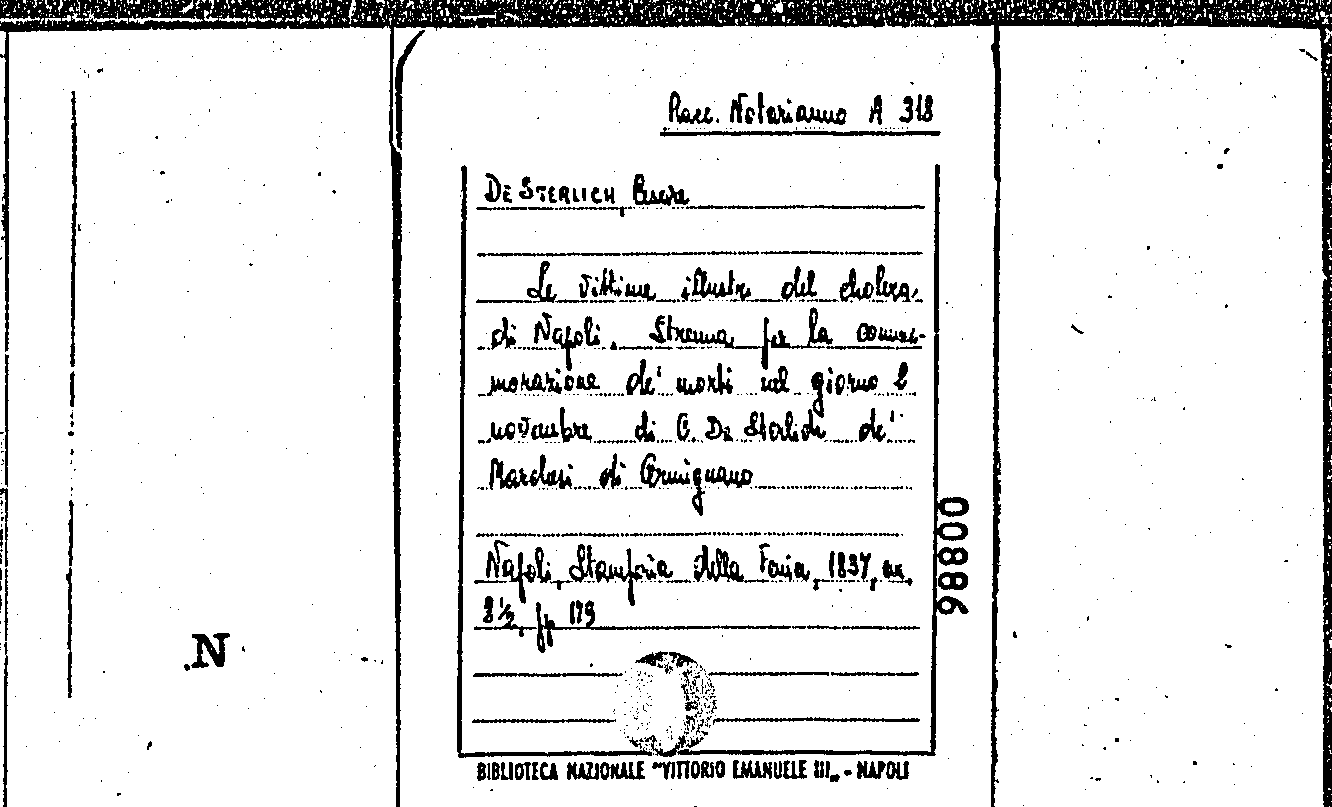 Racc. Notarianno A 318
DE STERLICH, Cesare
Le vittime illustri del cholera
di Napoli. Strenna per la comme-
morazione de' morti nel giorno 2
novembre di C. De Sterlich de'
Marchesi di Cermignano
Napoli, Stamperia della Fenice, 1837, in
8 1/2, pp 179
98800
N
BIBLIOTECA NAZIONALE "VITTORIO EMANUELE III„ - NAPOLI